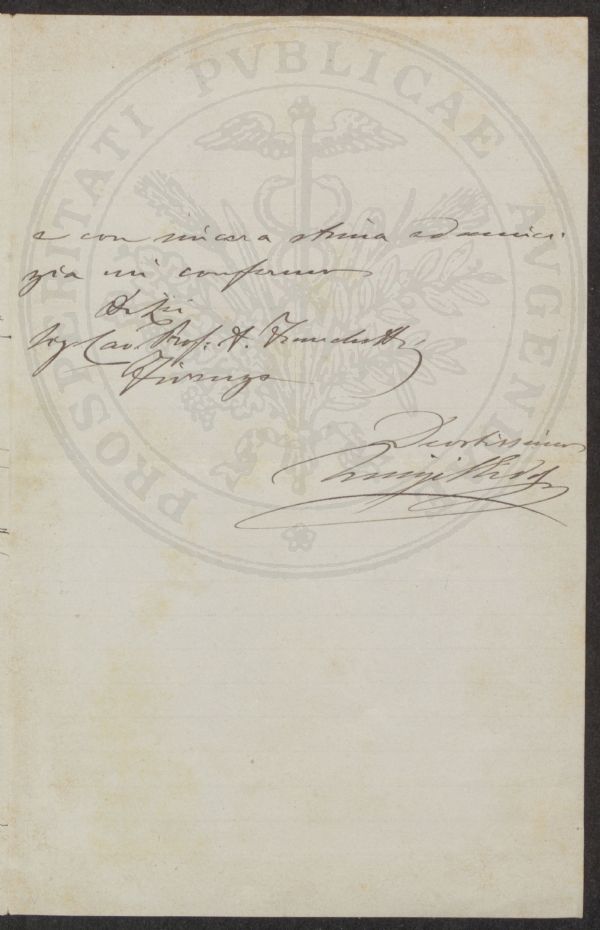 PROSPERITATI PVBLICAE AVGENDAE
e con sincera stima ed amici-
zia mi confermo
Di Lei
Sig. Cav. Prof. A. Franchetti
Firenze
Devotissimo
Luigi